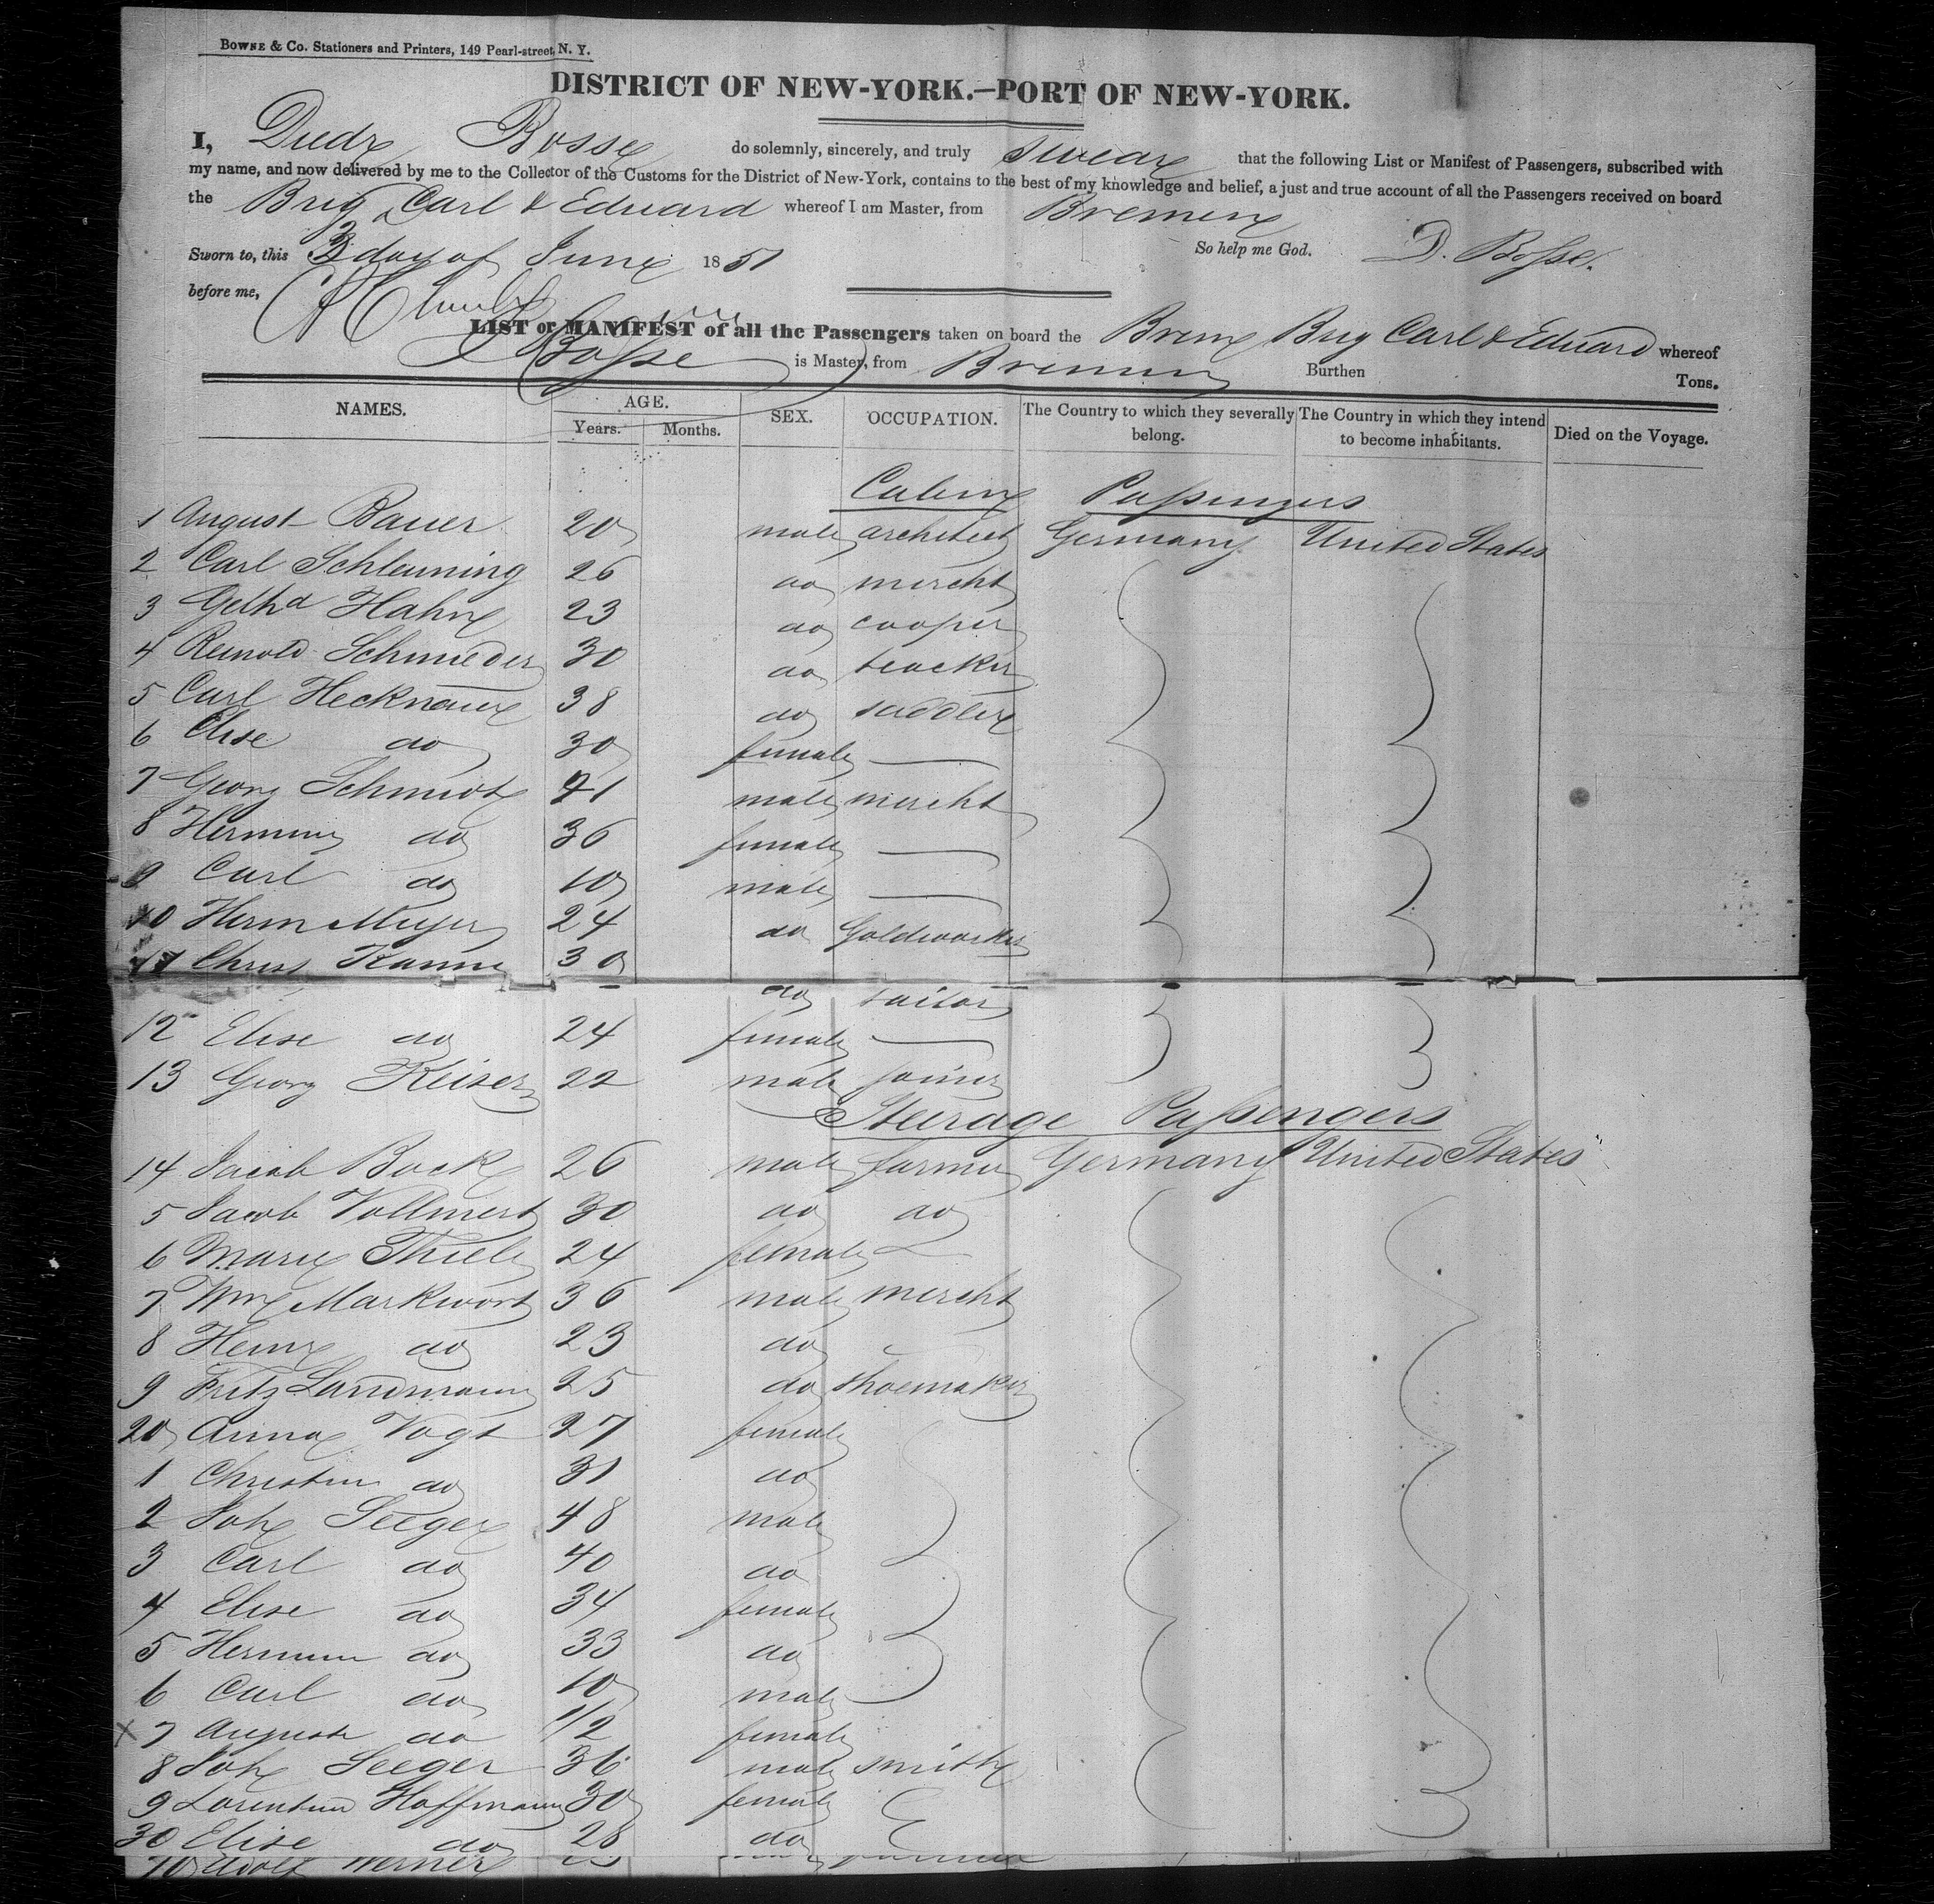 BOWNE & Co. Stationers and Printers, 149 Pearl-street, N. Y.
DISTRICT OF NEW-YORK.—PORT OF NEW-YORK.
I, Diedr Bosse do solemnly, sincerely, and truly swear that the following List or Manifest of Passengers, subscribed with
my name, and now delivered by me to the Collector of the Customs for the District of New-York, contains to the best of my knowledge and belief, a just and true account of all the Passengers received on board
the Brig Carl & Eduard whereof I am Master, from Bremen
Sworn to, this 3 day of June 1851 So help me God. D. Bosse.
before me,
LIST or MANIFEST of all the Passengers taken on board the Brem Brig Carl & Eduard whereof
Bosse is Master, from Bremen Burthen Tons.
NAMES. AGE. Years. Months. SEX. OCCUPATION. The Country to which they severally belong. The Country in which they intend to become inhabitants. Died on the Voyage.
Cabin Passengers
1 August Bauer 20 male architect Germany United States
2 Carl Schleuning 26 do mercht
3 Hahn 23 do cooper
4 Reinold Schmieder 30 do teacher
5 Carl Hecknaur 38 do saddler
6 Elise do 30 female
7 Georg Schmidt 41 male mercht
8 Hermin do 36 female
9 Carl do 10 male
10 Herm Meyer 24 do Goldworker
11 Christ Kanne 30 do tailor
12 Elise do 24 female
13 Georg Keiser 22 male joiner
Steerage Passengers
14 Jacob Bock 26 male farmer Germany United States
5 Jacob Vollmert 30 do do
6 Marie Thiele 24 female
7 Wm Markwort 36 male mercht
8 Henr do 23 do
9 Fritz Landmann 25 do shoemaker
20 Anna Vogt 27 female
1 Christin do 31 do
2 Joh Seeger 48 male
3 Carl do 40 do
4 Elise do 34 female
5 Hermin do 33 do
6 Carl do 10 male
x 7 Auguste do 1/2 female
8 Joh Seeger 36 male smith
9 Hoffmann 30 female
30 Elise do 28 do
Adolf Werner